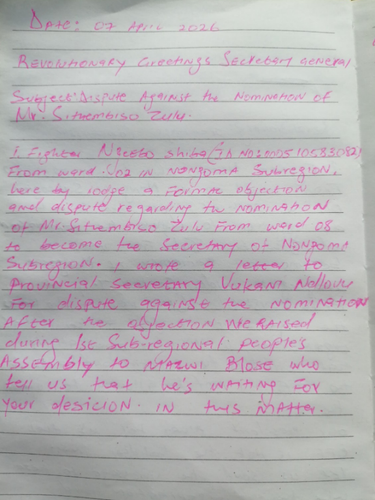 DATE: 07 April 2026
REVOLUTIONARY GREETINGS SECRETARY GENERAL
Subject: Dispute Against the NOMINATION OF
Mr. Sithembiso Zulu.
I Fighter
From ward 02 IN NONGOMA SUBREGION,
here by lodge a Formal objection
and dispute regarding the NOMINATION
of Mr. Sithembiso Zulu From ward 08
to become the Secretary of NONGOMA
SUBREGION. I wrote a letter to
Provincial Secretary Vukani
For dispute against the NOMINATION
After the objection WE RAISED
during 1st Sub-regional people's
Assembly to Blose who
tell us that he's WAITING FOR
your desicion. IN this MATTER.